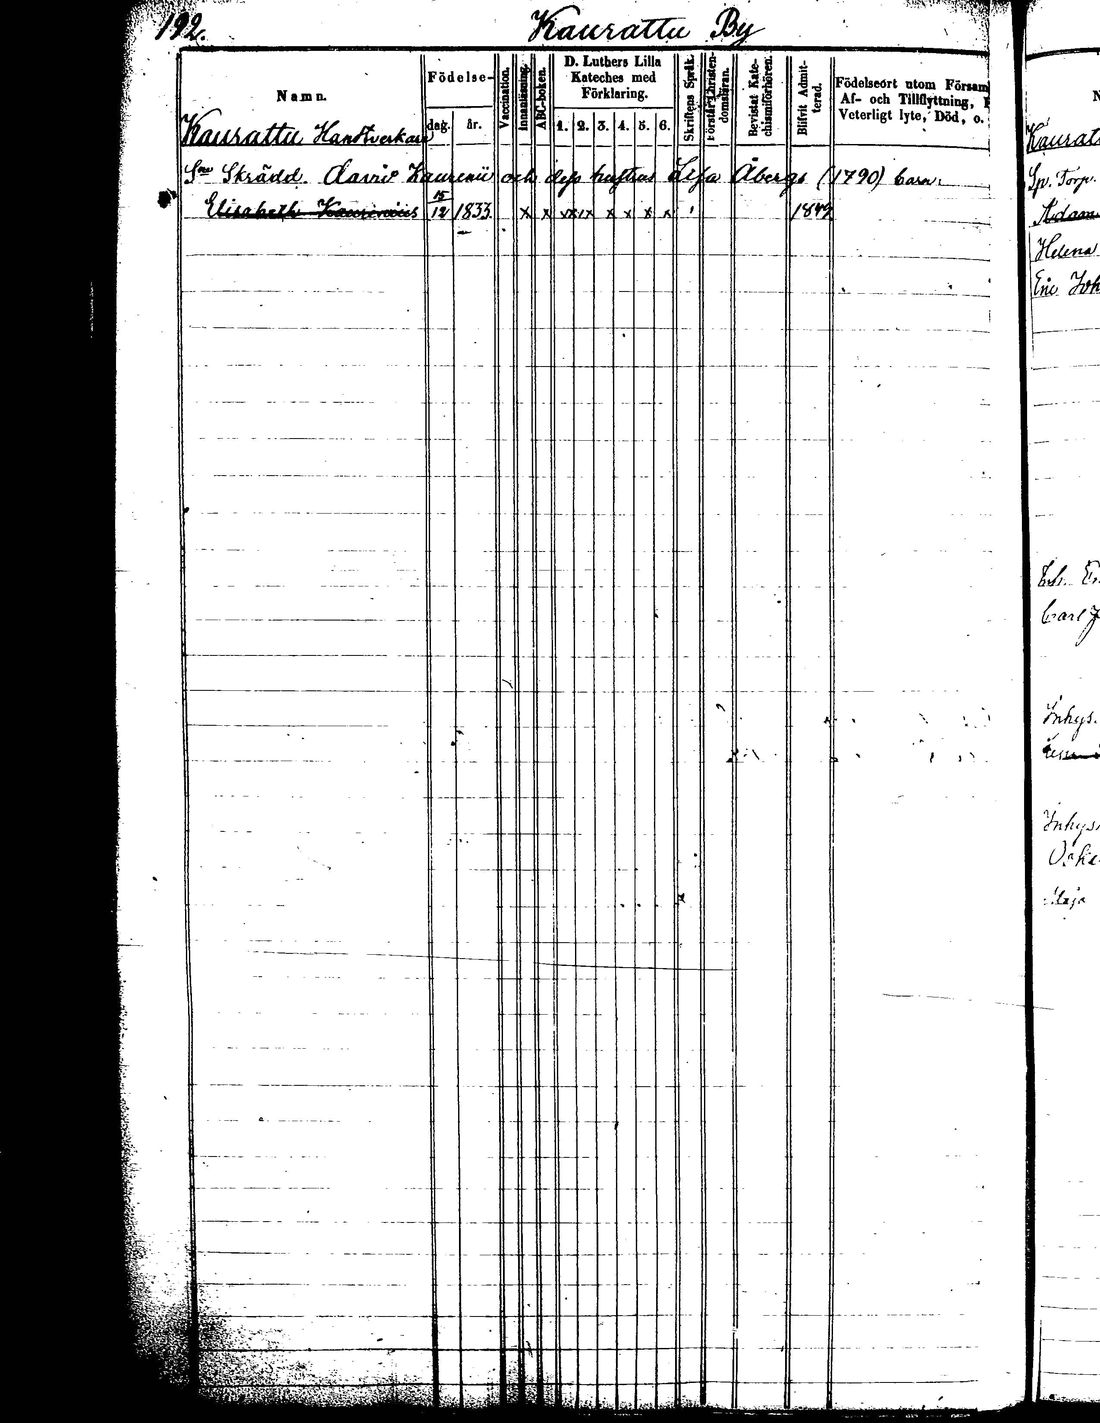 192.
Kaurattu By
Namn.
Födelse-
dag.
år.
Vaccination.
Innanläsning.
ABC-boken.
D. Luthers Lilla
Kateches med
Förklaring.
1. 2. 3. 4. 5. 6.
Skriftens Språk.
Förstår Christen-
domsläran.
Bevistat Kate-
chismiförhören.
Blifvit Admit-
terad.
Födelseort utom Försam
Af- och Tillflyttning,
Veterligt lyte, Död, o.
Kaurattu Handtverkare
Sne Skrädd. David Laurenii och dess hustrus Lisa Åbergs (1790) barn:
Elisabeth Laurenius 15/12 1833. x x x x x x x x 1849
Kaurat
Sp. Torp.
Adam
Helena
Eric Joh
Carl J
Inhys.
Inhys